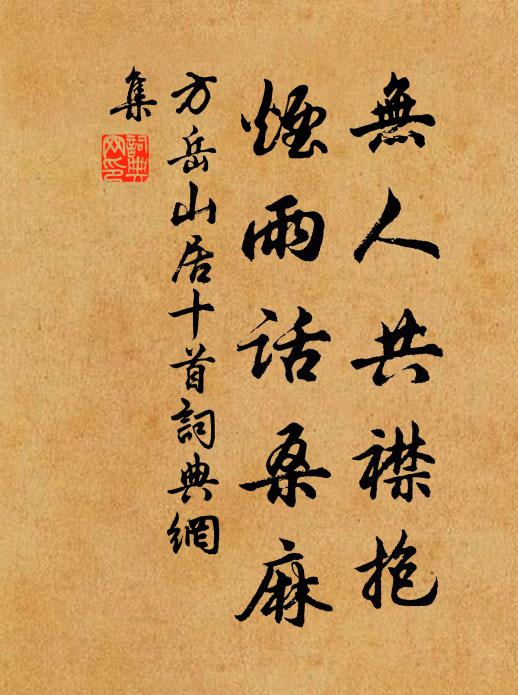 無人共襟抱
煙雨話桑麻
方岳山居十首詞典網
集
詞典
网印